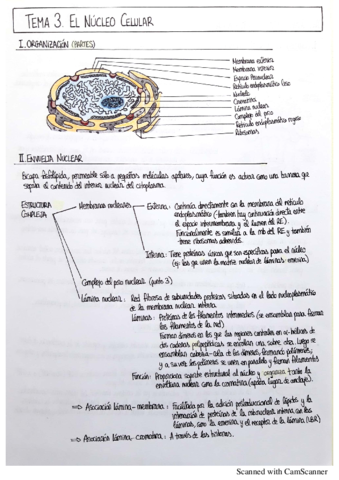 TEMA 3. EL NÚCLEO CELULAR
I. ORGANIZACIÓN (PARTES)
Membrana externa
Membrana interna
Espacio Perinuclear
Retículo endoplasmático liso
Nucléolo
Cromatina
Lámina nuclear
Complejo del poro
Retículo endoplasmático rugoso
Ribosomas
II. ENVUELTA NUCLEAR
Bicapa fosfolipídica, permeable sólo a pequeñas moléculas apolares, cuya función es actuar como una barrera que
separa el contenido del interior nuclear del citoplasma.
ESTRUCTURA
COMPLEJA
Membranas nucleares
Externa: Continúa directamente con la membrana del retículo
endoplasmático (también hay continuidad directa entre
el espacio intermembrana y el lumen del RE).
Funcionalmente es similar a la mb del RE y también
tiene ribosomas adheridos.
Interna: Tiene proteínas únicas que son específicas para el núcleo
(ej: las que unen la matriz nuclear de láminas: emerina).
Complejo del poro nuclear (punto 3)
Lámina nuclear: Red fibrosa de subunidades proteicas situadas en el lado nucleoplasmático
de la membrana nuclear interna
Láminas: Proteínas de los filamentos intermedios (se ensamblan para formar
los filamentos de la red)
Forman dímeros en los que las regiones centrales en α-hélices de
dos cadenas polipeptídicas se enrollan una sobre otra, luego se
ensamblan cabeza-cola de los dímeros, formando polímeros,
y a su vez los polímeros se unen en paralelo y forman filamentos
Función: Proporciona soporte estructural al núcleo y organiza tanto la
envoltura nuclear como la cromatina (sujeta, lugares de anclaje).
⇒ Asociación lámina-membrana: Facilitada por la adición postraduccional de lípidos y la
interacción de proteínas de la mb nuclear interna con las
láminas, como la emerina, y el receptor de la lámina B (LBR)
⇒ Asociación lámina-cromatina: A través de las histonas.
Scanned with CamScanner